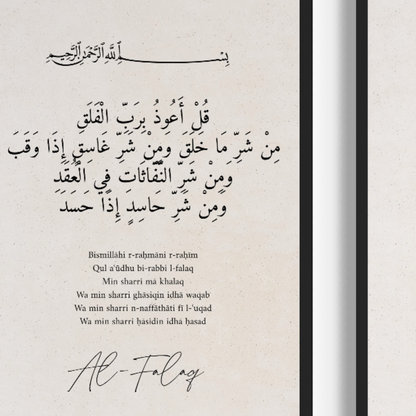 بِسْمِ ٱللَّٰهِ ٱلرَّحْمَٰنِ ٱلرَّحِيمِ
قُلْ أَعُوذُ بِرَبِّ الْفَلَقِ
مِنْ شَرِّ مَا خَلَقَ وَمِنْ شَرِّ غَاسِقٍ إِذَا وَقَبَ
وَمِنْ شَرِّ النَّفَّاثَاتِ فِي الْعُقَدِ
وَمِنْ شَرِّ حَاسِدٍ إِذَا حَسَدَ
Bismillāhi r-raḥmāni r-raḥīm
Qul a'ūdhu bi-rabbi l-falaq
Min sharri mā khalaq
Wa min sharri ghāsiqin idhā waqab
Wa min sharri n-naffāthāti fī l-'uqad
Wa min sharri ḥāsidin idhā ḥasad
Al-Falaq